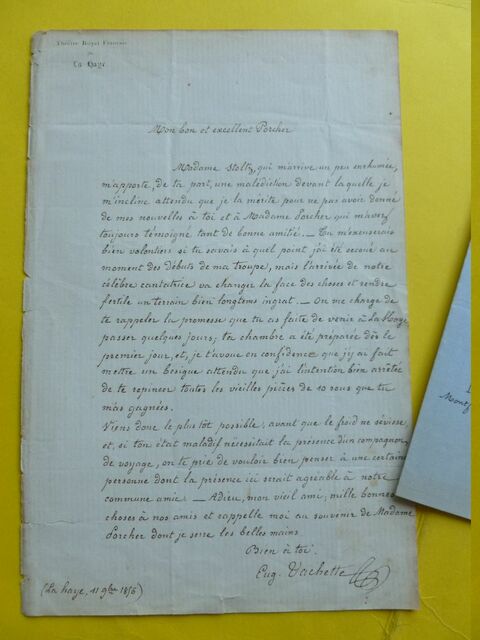 Théâtre Royal Français
de
La Haye
Mon bon et excellent Porcher
Madame Stoltz, qui m'arrive un peu enrhumée,
m'apporte, de ta part, une malédiction devant laquelle je
m'incline attendu que je la mérite pour ne pas avoir donné
de mes nouvelles à toi et à Madame Porcher qui m'avez
toujours témoigné tant de bonne amitié. — Tu m'excuserais
bien volontiers si tu savais à quel point j'ai été secoué au
moment des débuts de ma troupe, mais l'arrivée de notre
célèbre cantatrice va changer la face des choses et rendre
fertile un terrain bien longtems ingrat. — On me charge de
te rappeler la promesse que tu as faite de venir à La Haye
passer quelques jours; ta chambre a été préparée dès le
premier jour, et, je t'avoue en confidence que j'y ai fait
mettre un bésigue attendu que j'ai l'intention bien arrêtée
de te repincer toutes les vieilles pièces de 10 sous que tu
m'as gagnées.
Viens donc le plus tôt possible, avant que le froid ne sévisse
et, si ton état maladif nécessitait la présence d'un compagnon
de voyage, on te prie de vouloir bien penser à une certaine
personne dont la présence ici serait agréable à notre
commune amie. — Adieu, mon vieil ami, mille bonnes
choses à nos amis et rappelle moi au souvenir de Madame
Porcher dont je serre les belles mains
Bien à toi.
Eug. Vachette
(La haye, 11 9bre 1856)